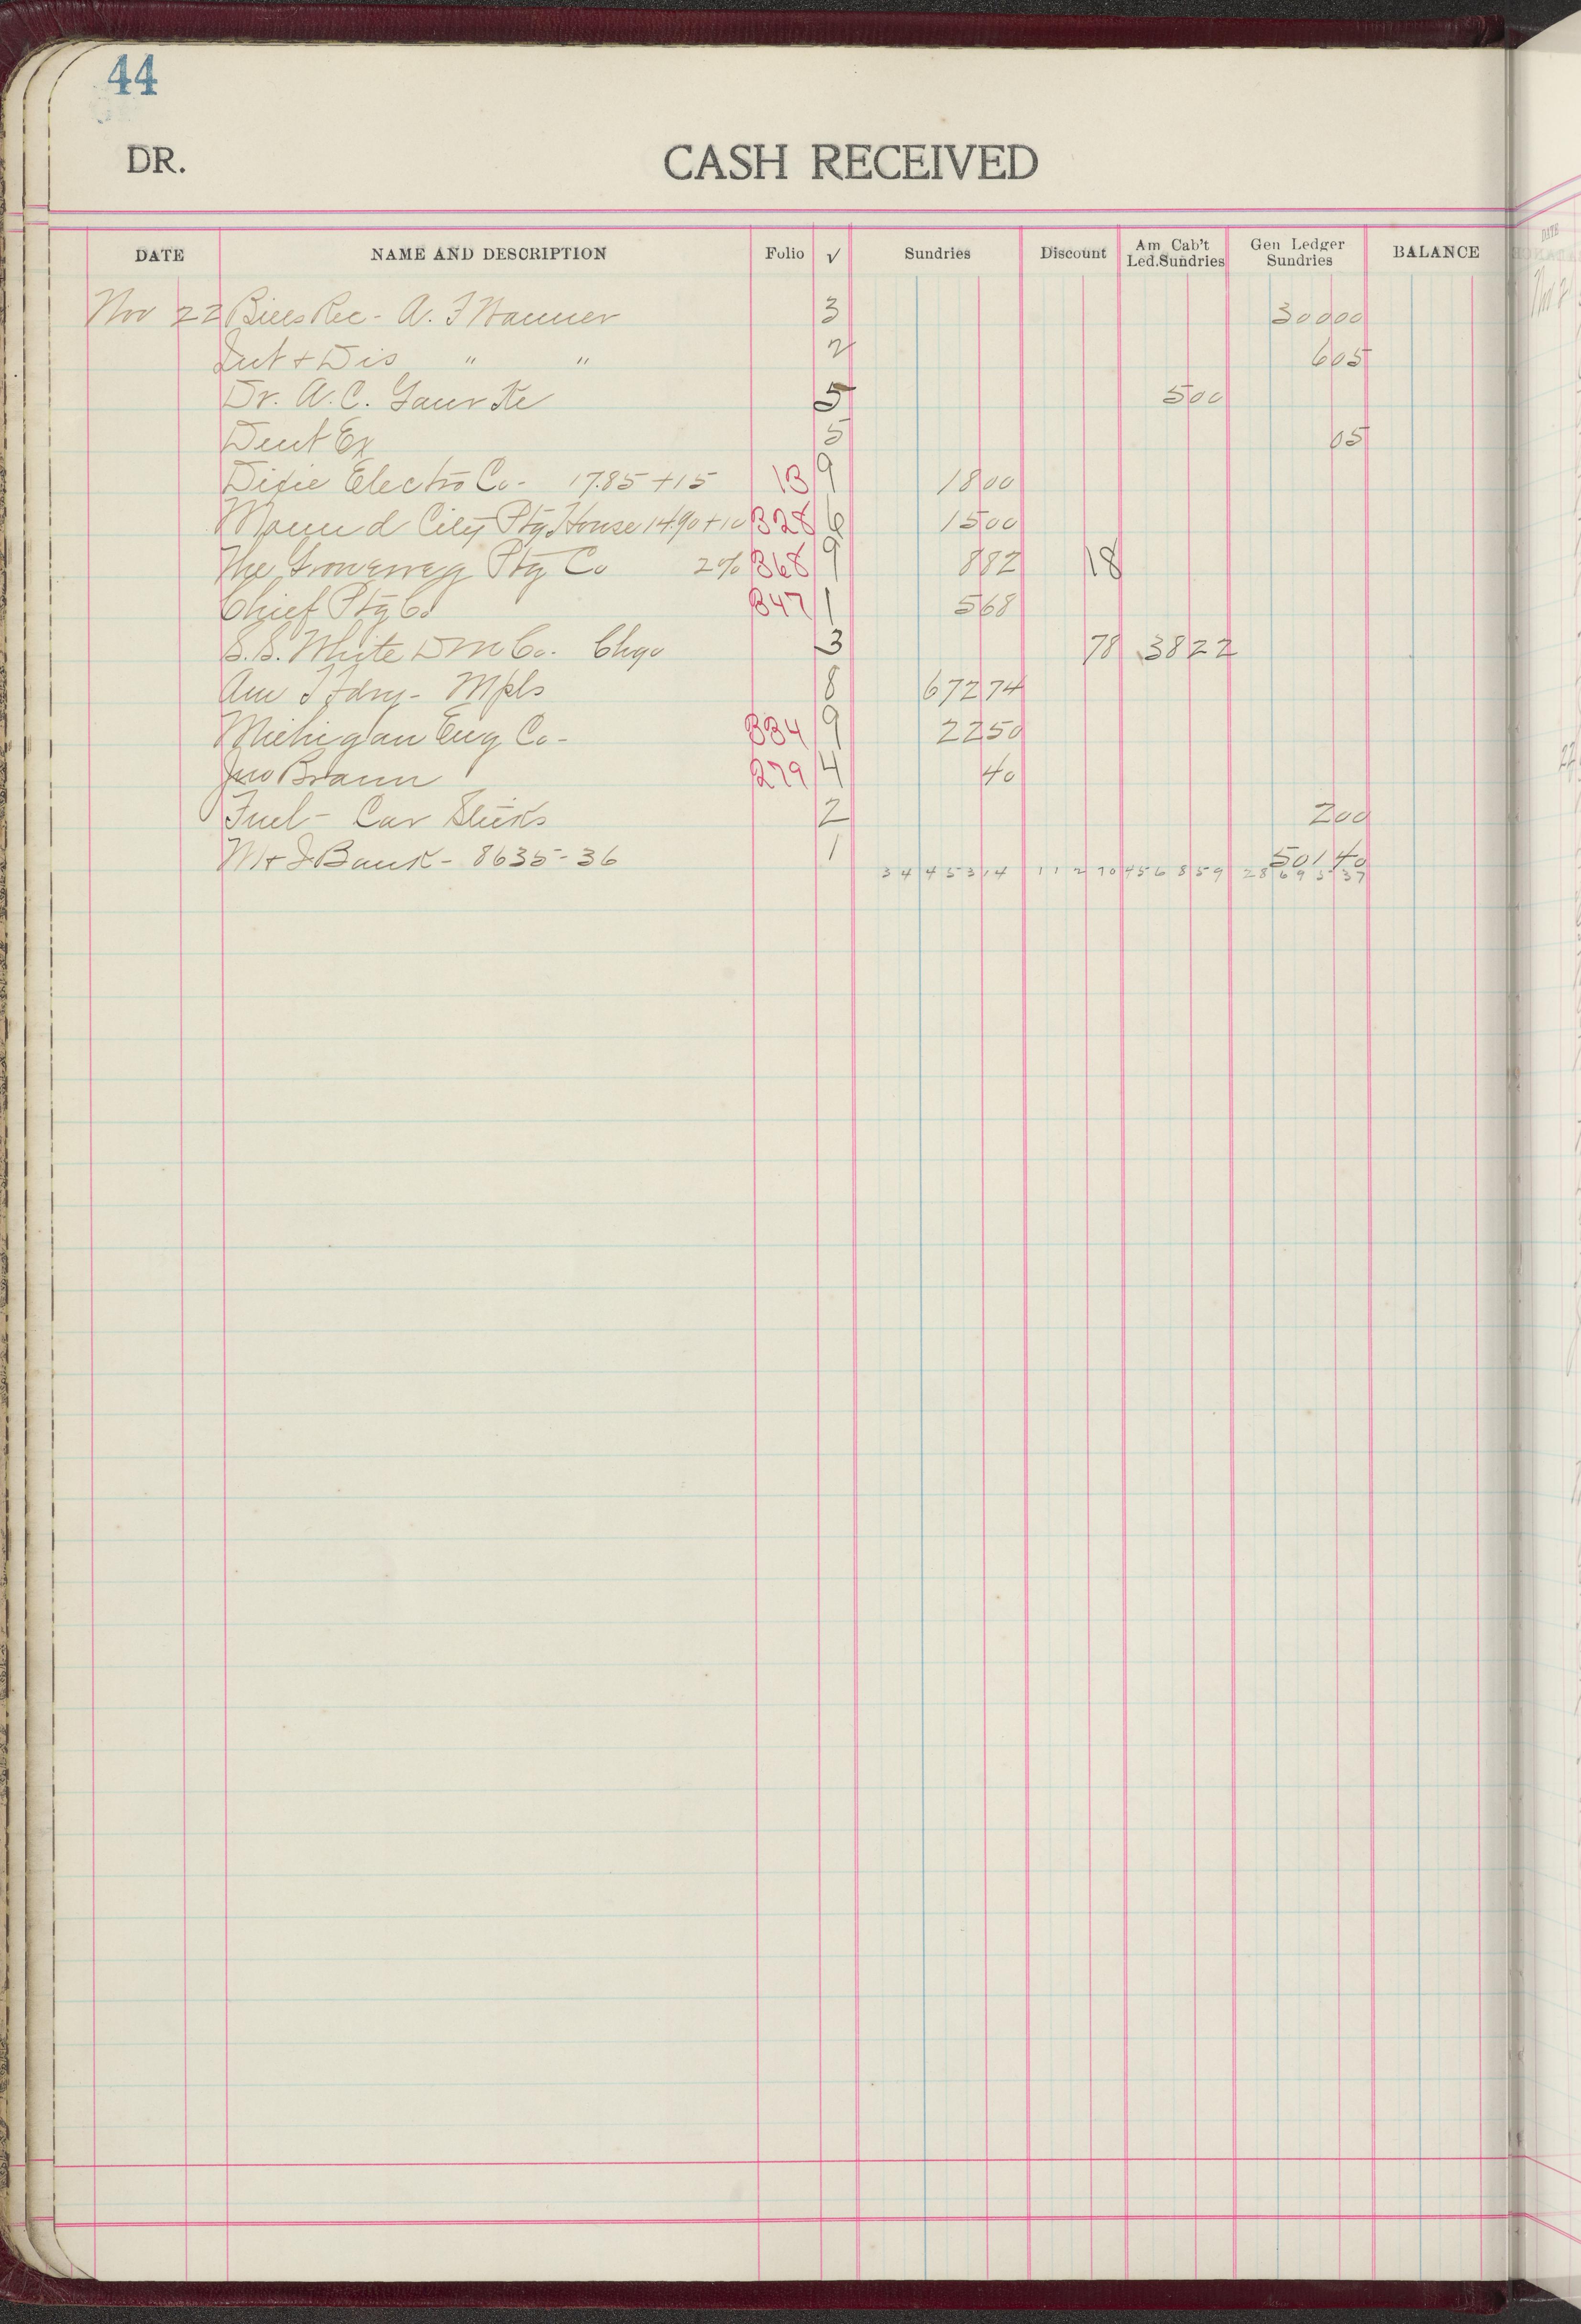 44
DR. CASH RECEIVED
DATE NAME AND DESCRIPTION Folio √ Sundries Discount Am Cab't Led.Sundries Gen Ledger Sundries BALANCE
Nov 22 Bills Rec - A. F Wanner 3 300 00
Int + Dis " " 2 6 05
Dr. A. C. 5 5 00
Dent Ex 5 05
Dixie Electro Co - 17.85 + 15 13 9 18 00
Mound City Ptg House 14.90 + 10 328 6 15 00
The Groneweg Ptg Co 2% 368 9 8 82 18
Chief Ptg Co 347 1 5 68
S. S. White D M Co. Chgo 3 78 38 22
Am T Fdry - Mpls 8 672 74
Michigan Eng Co - 334 9 22 50
Jno Braun 279 4 40
Fuel - Car 2 2 00
M + I Bank - 8635-36 1 501 40
3 4 4 5 3 1 4 1 1 2 7 0 4 5 6 8 5 9 2 8 6 9 5 3 7